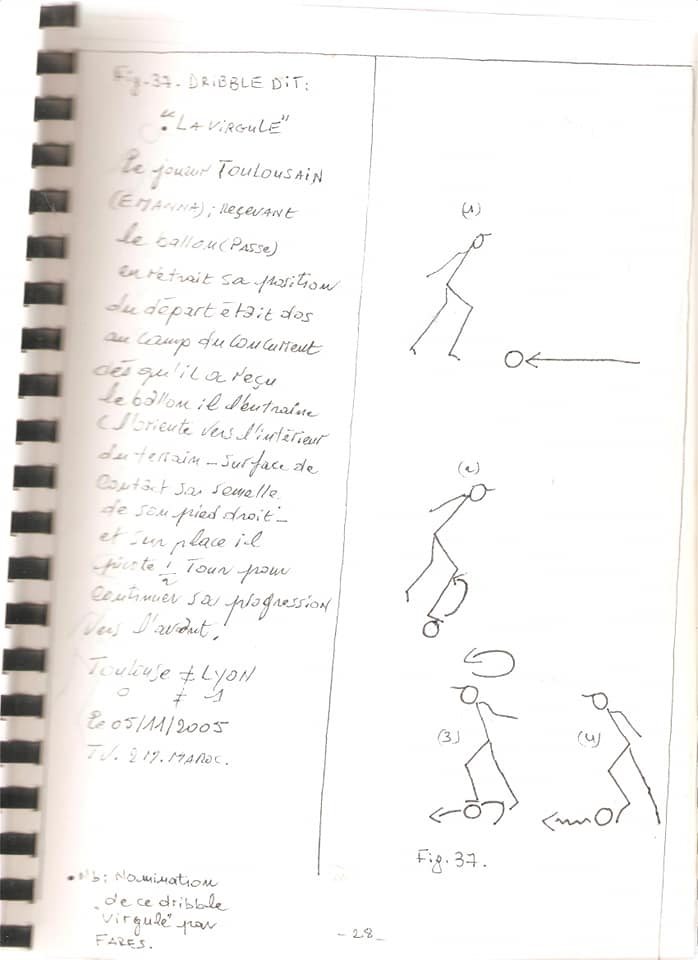 Fig.37. DRIBBLE DIT:
"LA VIRGULE"
Le joueur TOULOUSAIN
(EMANNA); REÇEVANT
le ballon (PASSE)
en retrait sa position
du départ était dos
au camp du concurrent
dès qu'il a reçu
le ballon il l'entraine
(l'oriente vers l'intérieur
du terrain - surface de
contact sa semelle
de son pied droit -
et sur place il
pivote 1/2 Tour pour
continuer sa progression
vers l'avant.
Toulouse ≠ LYON
0 ≠ 1
le 05/11/2005
TV. 2M. MAROC.
• Nb: Nomination
de ce dribble
"virgule" par
FARES.
(1)
(2)
(3)
(4)
Fig.37.
- 28 -